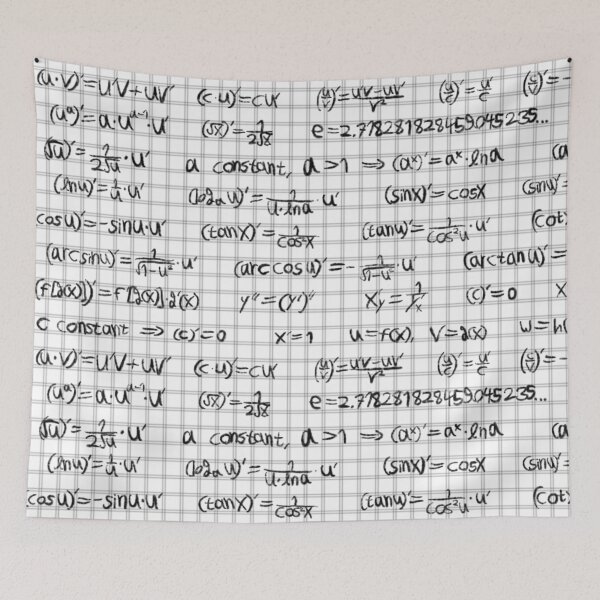 (u·v)'=u'v+uv' (c·u)'=cu' (u/v)'=u'v-uv'/v² (u/c)'=u'/c
(uᵃ)'=a·uᵃ⁻¹·u' (√x)'=1/2√x e=2.718281828459045235...
(√u)'=1/2√u·u' a constant, a>1 ⟹ (aˣ)'=aˣ·lna
(lnu)'=1/u·u' (logₐu)'=1/u·lna·u' (sinx)'=cosx (sinu)'=
cosu)'=-sinu·u' (tanx)'=1/cos²x (tanu)'=1/cos²u·u' (cot
(arcsinu)'=1/√1-u²·u' (arccosu)'=-1/√1-u²·u' (arctanu)'=
(f[g(x)])'=f'[g(x)]·g'(x) y''=(y')' (c)'=0 x
c constant ⟹ (c)'=0 x'=1 u=f(x), v=g(x) w=h(
(u·v)'=u'v+uv' (c·u)'=cu' (u/v)'=u'v-uv'/v² (u/c)'=u'/c
(uᵃ)'=a·uᵃ⁻¹·u' (√x)'=1/2√x e=2.718281828459045235...
(√u)'=1/2√u·u' a constant, a>1 ⟹ (aˣ)'=aˣ·lna
(lnu)'=1/u·u' (logₐu)'=1/u·lna·u' (sinx)'=cosx (sinu)'=
cosu)'=-sinu·u' (tanx)'=1/cos²x (tanu)'=1/cos²u·u' (cot